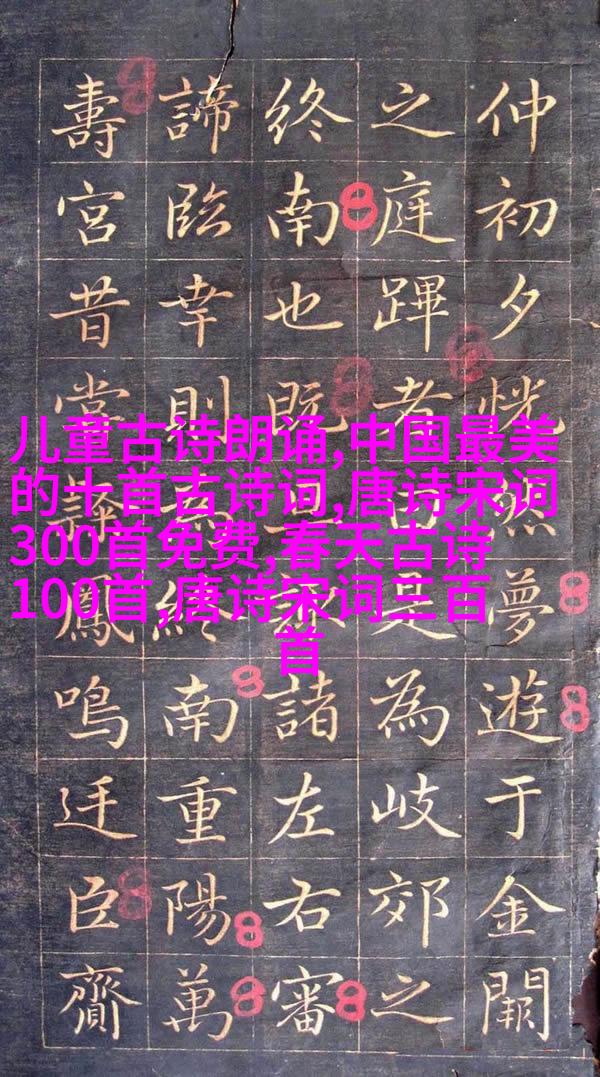 儿童古诗朗诵,中国最美
的十首古诗词,唐诗宋词
300首免费,春天古诗
100首,唐诗宋词三百
首
仲初夕恍然夢遊于金闕
之庭蹕者曰是為岐郊之
終南也既諸左右審
諦臨幸則終南重陽萬
壽宮昔嘗鳳鳴廷臣齎